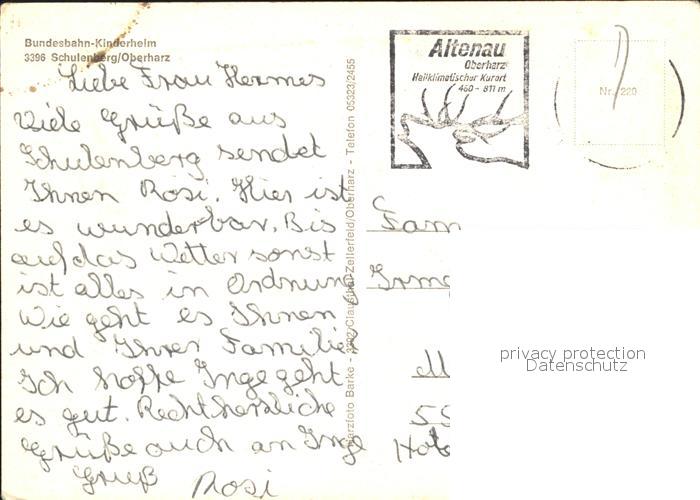 Bundesbahn-Kinderheim
3396 Schulenberg/Oberharz
Liebe Frau Hermes
Viele Grüße aus
Schulenberg sendet
Ihnen Rosi. Hier ist
es wunderbar. Bis
auf das Wetter sonst
ist alles in Ordnung
Wie geht es Ihnen
und Ihrer Familie,
Ich hoffe Inge geht
es gut. Recht herzliche
Grüße auch an Inge
Gruß Rosi
Harzfoto Barke - 3392 Clausthal-Zellerfeld/Oberharz - Telefon 05323/2455
Altenau
Oberharz
Heilklimatischer Kurort
450 - 811 m
Nr. 220
Fam
Irm
55
privacy protection
Datenschutz